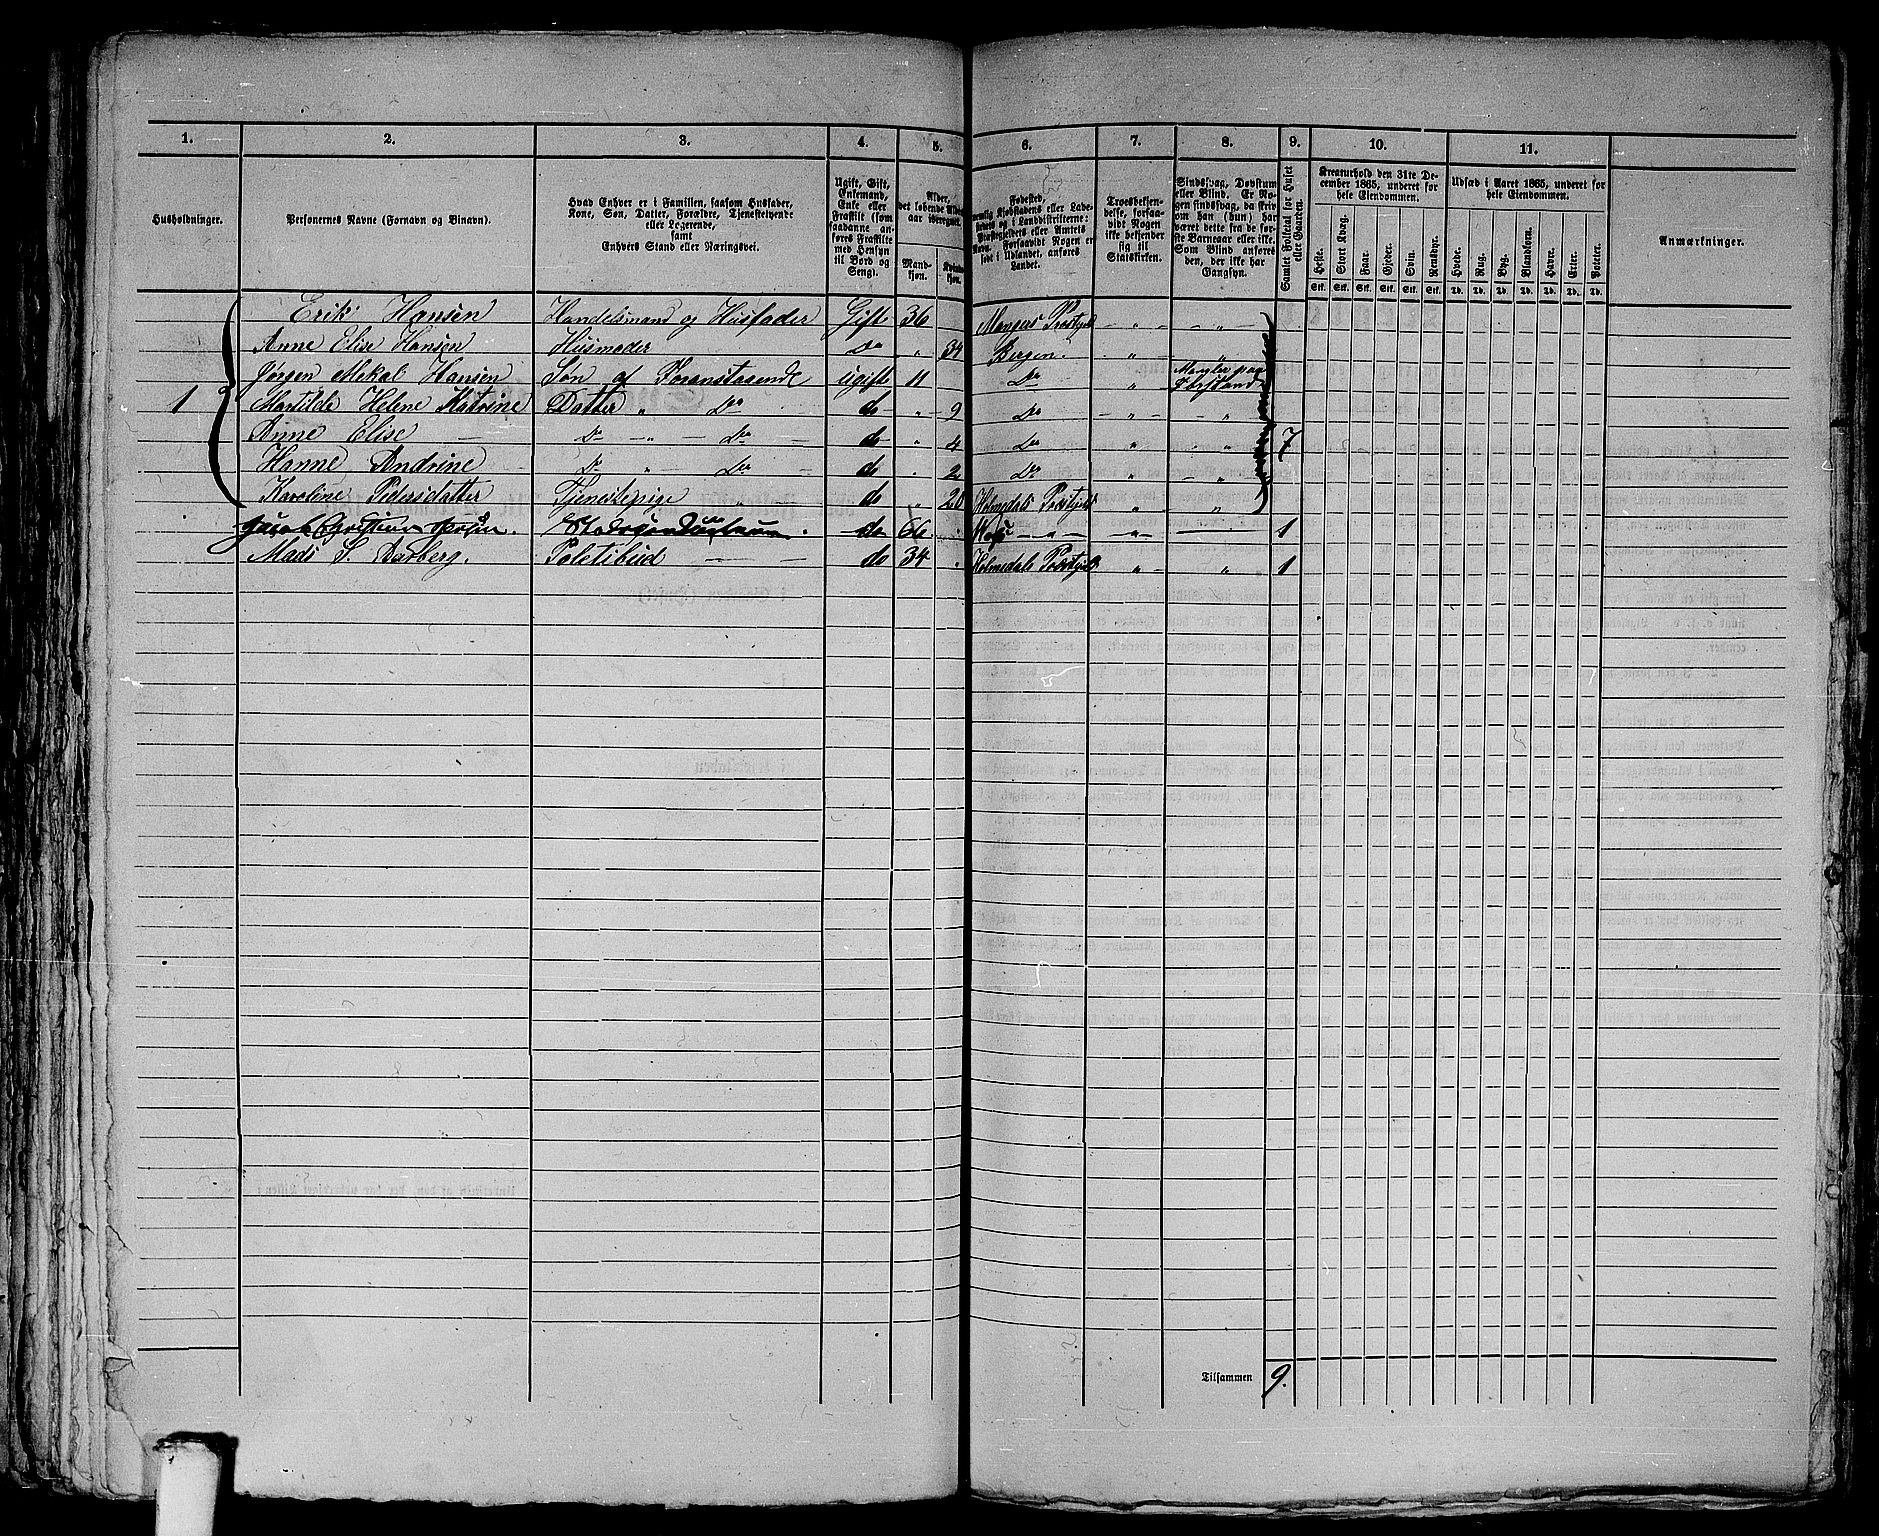 1. 2. 3. 4. 5. 6. 7. 8. 9. 10. 11.
Husholdninger.
Personernes Navne (Fornavn og Binavn).
Hvad Enhver er i Familien, saasom Husfader, Kone, Søn, Datter, Forældre, Tjenestetyende eller Logerende, samt Enhvers Stand eller Næringsvei.
Ugift, Gift, Enkemand, Enke eller Fraskilt (som saadanne anføres Fraskilte med Hensyn til Bord og Seng).
Alder, det løbende Alders aar iberegnet.
Mandkjøn. Kvindekjøn.
Fødested, nemlig Kjøbstadens eller Ladestedets og i Landdistrikterne: Præstegjeldets eller Amtets Navn. Forsaavidt Nogen er født i Udlandet, anføres Landet.
Troesbekjendelse, forsaavidt Nogen ikke bekjender sig til Statskirken.
Sindssvag, Døvstum eller Blind. Er Nogen sindssvag, da skrives om han (hun) har været dette fra de første Barneaar eller ikke. Som Blind anføres den, der ikke har Gangsyn.
Samlet Folketal for Huset eller Gaarden.
Kreaturhold den 31te December 1865, underet for hele Eiendommen.
Heste. Stort Kvæg. Faar. Gjeder. Svin. Rensdyr.
Stk. Stk. Stk. Stk. Stk. Stk.
Udsæd i Aaret 1865, underet for hele Eiendommen.
Hvede. Rug. Byg. Blandkorn. Havre. Erter. Poteter.
Td. Td. Td. Td. Td. Td. Td.
Anmærkninger.
Erik Hansen Handelsmand og Husfader Gift 36 Mangers Præstgjeld
Anne Elise Hansen Husmoder Do 34 Bergen.
Jørgen Mekal Hansen Søn af Foranstaaende ugift 11 Do Mangler paa Forstand
1 Martilde Helene Katrine Datter " Do do 9 Do
Anne Elise Do " Do do 4 Do 7
Hanne Andrine Do " Do do 2 Do
Karoline Pedersdatter Tjenestepige do 20 Holmedals Præstgjeld
Jacob Christian do 66 1
Mads S. Politibud do 34 Holmedals Præstgjeld 1
Tilsammen 9.